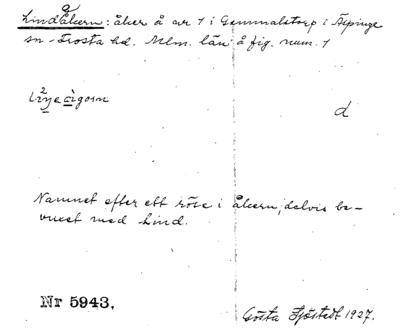 Lindåkern: åker å nr 1 i Gummalstorp i Äspinge
sn - Frosta hd. Mlm. län å fig. num. 1
d
Namnet efter ett röse i åkern, delvis be-
vuxet med lind.
Nr 5943.
Gösta Sjöstedt 1927.